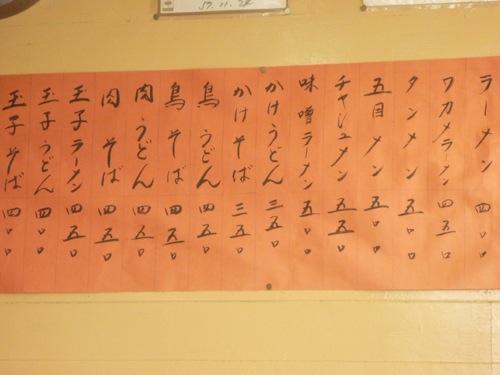 57.11.24
ラーメン 四〇〇
ワカメラーメン 四五〇
タンメン 五〇〇
五目メン 五〇〇
チャシュメン 五五〇
味噌ラーメン 五〇〇
かけうどん 三五〇
かけそば 三五〇
鳥うどん 四五〇
鳥そば 四五〇
肉うどん 四五〇
肉そば 四五〇
玉子ラーメン 四五〇
玉子うどん 四〇〇
玉子そば 四〇〇